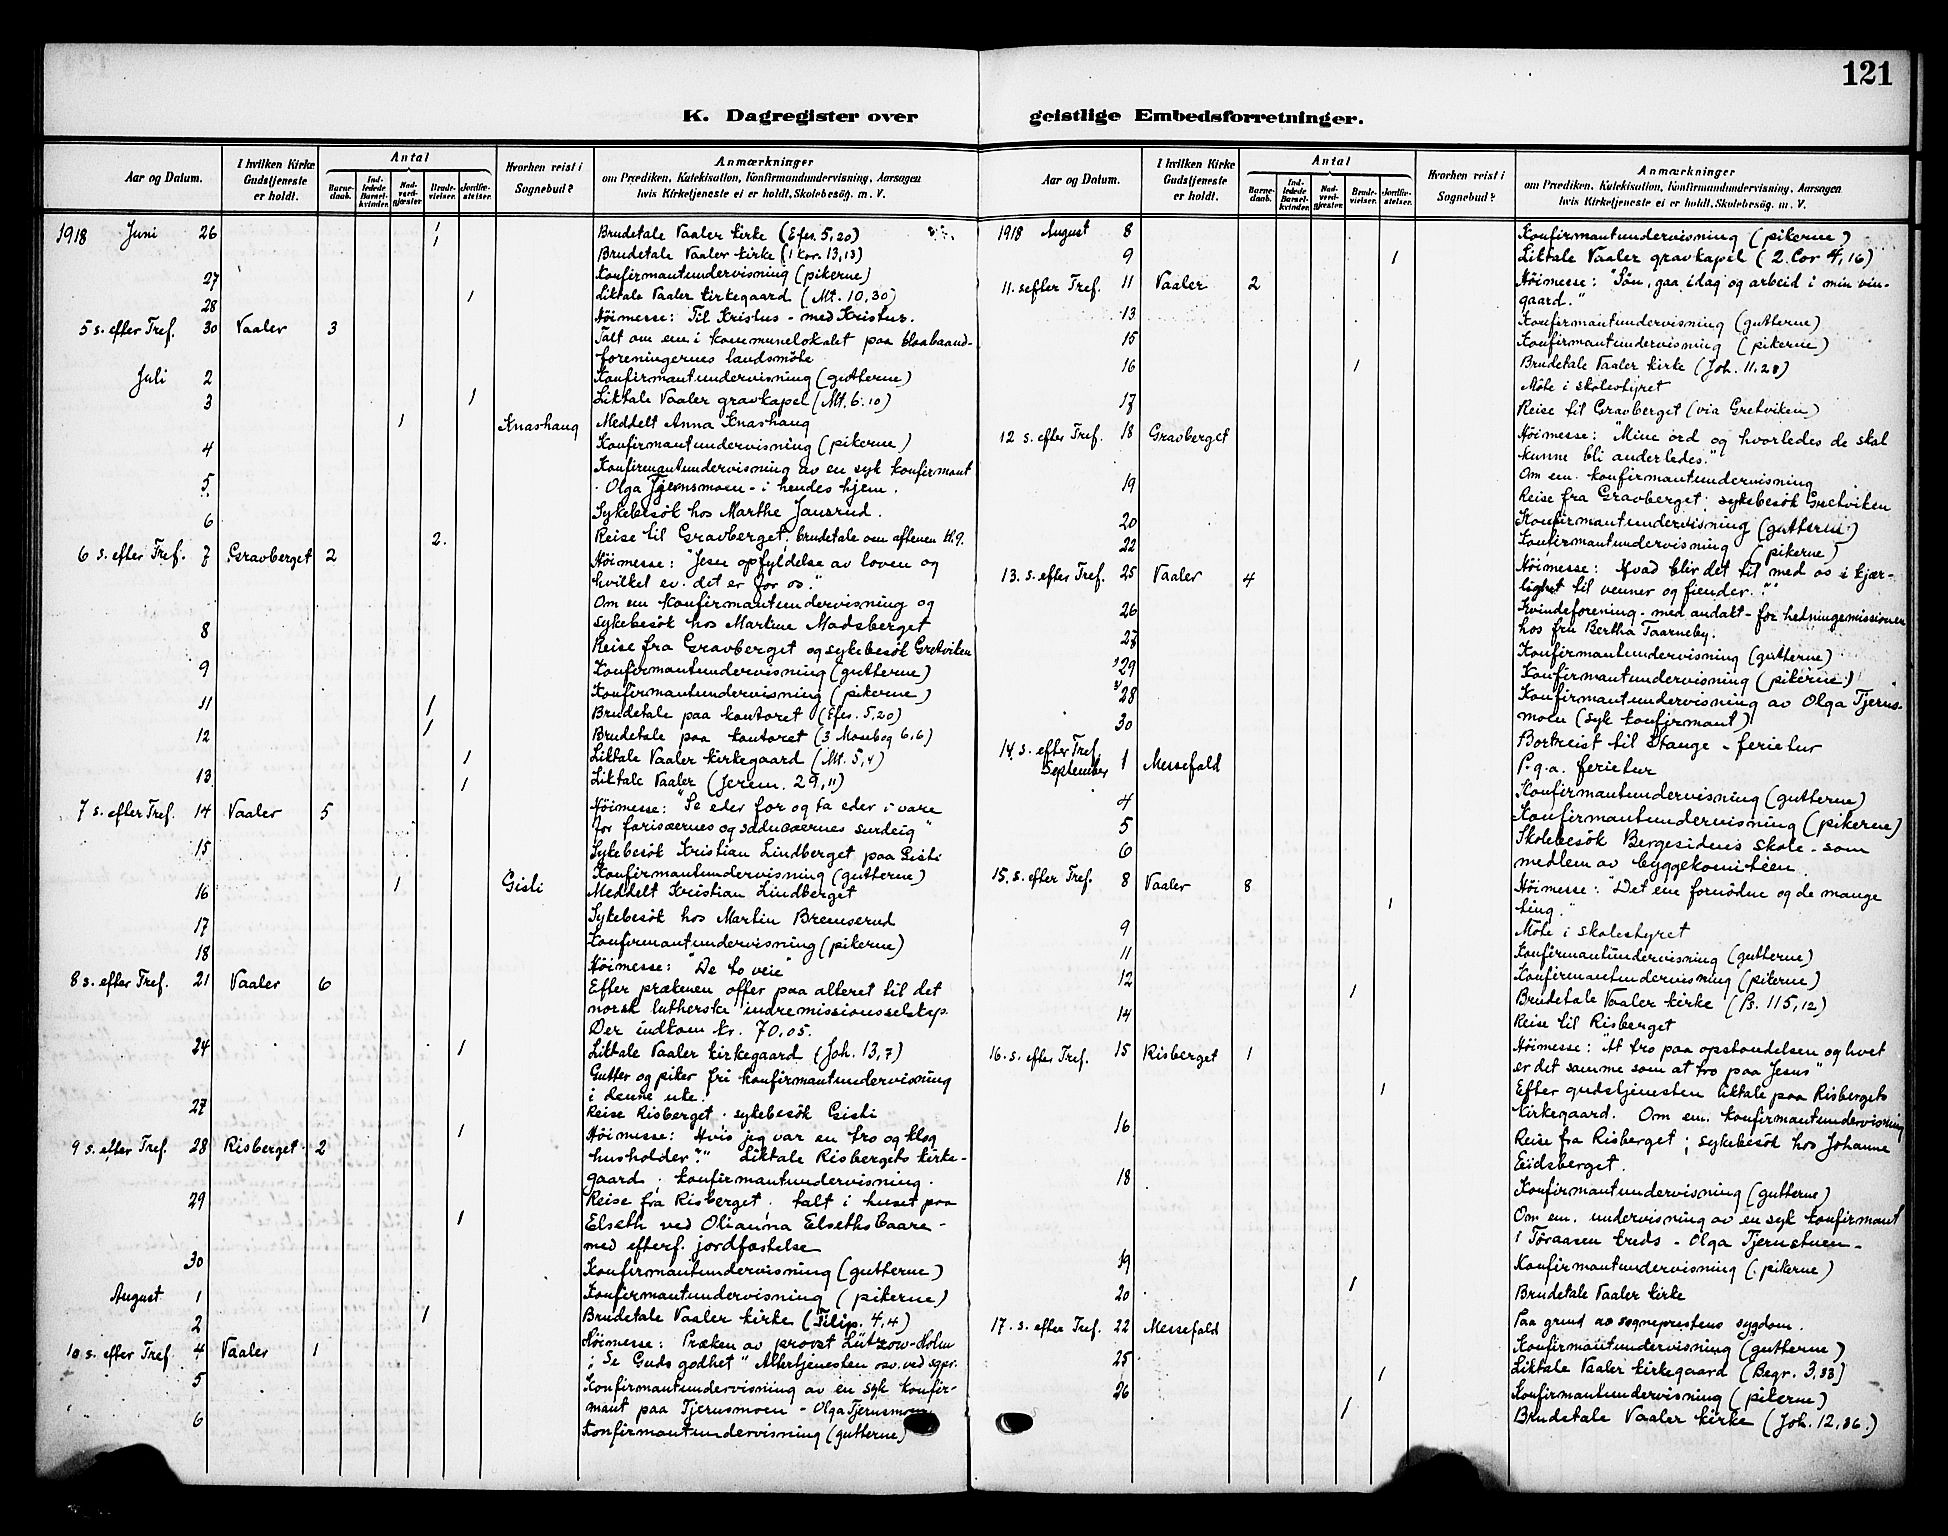 121
K. Dagregister over geistlige Embedsforretninger.
Aar og Datum. I hvilken Kirke Gudstjeneste er holdt. Antal Barnedaab. Indledede Barselkvinder. Nadverdgjæster. Brudevielser. Jordfæstelser. Hvorhen reist i Sognebud? Anmærkninger om Prædiken, Katekisation, Konfirmandundervisning, Aarsagen hvis Kirketjeneste ei er holdt, Skolebesøg. m. V.
1918 Juni 26 1 Brudetale Vaaler kirke (Efes. 5,20)
1 Brudetale Vaaler kirke (1 Kor. 13,13)
27 Konfirmantundervisning (pikerne)
28 1 Liktale Vaaler kirkegaard (Mt. 10,30)
5 s. efter Tref. 30 Vaaler 3 Høimesse: Til Kristus - med Kristus.
Talt om em. i kommunelokalet paa blaabaand-
foreningernes landsmöte
Juli 2 Konfirmantundervisning (gutterne)
3 1 Liktale Vaaler gravkapel (Mt. 6.10)
1 Knashaug Meddelt Anna Knashaug
4 Konfirmantundervisning (pikerne)
Konfirmantundervisning av en syk konfirmant
5. Olga Tjernsmoen - i hendes hjem.
6 Sykebesök hos Marthe Jansrud.
2. Reise til Gravberget; brudetale om aftenen kl. 9.
6 s. efter Tref. 7 Gravberget 2 Høimesse: "Jesu opfyldelse av loven og
hvilket ev. det er for os."
Om em konfirmantundervisning og
8 sykebesök hos Martine Madsberget
Reise fra Gravberget og sykebesök Gretviken
9 Konfirmantundervisning (gutterne)
11 Konfirmantundervisning (pikerne)
1 Brudetale paa kontoret (Efes. 5,20)
12 1 Brudetale paa kontoret (3 Mosebog 6,6)
1 Liktale Vaaler kirkegaard (Mt. 5,4)
13 1 Liktale Vaaler (Jerem. 29,11)
7 s. efter Tref. 14 Vaaler 5 Høimesse: "Se eder for og ta eder i vare
for farisæernes og sadducæernes surdeig"
15 Sykebesök Kristian Lindberget paa Gisti
Konfirmantundervisning (gutterne)
16 1 Gisti Meddelt Kristian Lindberget
17 Sykebesök hos Martin Bremserud
18 Konfirmantundervisning (pikerne)
8 s. efter Tref. 21 Vaaler 6 Høimesse: "De to veie"
Efter prækenen offer paa alteret til det
norsk lutherske indremissionsselskap.
Der indkom kr. 70,05.
24 1 Liktale Vaaler kirkegaard (Joh. 13,7)
Gutter og piker fri konfirmantundervisning
i denne uke.
27 Reise Risberget. sykebesök Gisti
9 s. efter Tref. 28 Risberget 2 1 Høimesse: Hvis jeg var en tro og klog
husholder?" Liktale Risbergets kirke-
gaard; konfirmantundervisning.
29 Reise fra Risberget; talt i huset paa
1 Elseth ved Olianna Elseths baare -
med efterf. jordfæstelse
30 Konfirmantundervisning (gutterne)
August 1 Konfirmantundervisning (pikerne)
2 1 Brudetale Vaaler kirke (Filip. 4,4)
10 s. efter Tref 4 Vaaler 1 Høimesse: Præken av provst Lützow-Holm
; Se Guds godhet" Altertjenesten osv. ved sgpr.
5 Konfirmantundervisning av en syk konfir-
mant paa Tjernsmoen - Olga Tjernsmoen
6 Konfirmantundervisning (gutterne)
Aar og Datum. I hvilken Kirke Gudstjeneste er holdt. Antal Barnedaab. Indledede Barselkvinder. Nadverdgjæster. Brudevielser. Jordfæstelser. Hvorhen reist i Sognebud? Anmærkninger om Prædiken, Katekisation, Konfirmandundervisning, Aarsagen hvis Kirketjeneste ei er holdt, Skolebesøg. m. V.
1918 August 8 Konfirmantundervisning (pikerne)
9 1 Liktale Vaaler gravkapel (2. Cor 4,16)
11. s efter Tref. 11 Vaaler 2 Høimesse: "Sön, gaa idag og arbeid i min vin-
gaard."
13 Konfirmantundervisning (gutterne)
15 Konfirmantundervisning (pikerne)
16 1 Brudetale Vaaler kirke (Joh. 11,28)
Möte i skolestyret
17 Reise til Gravberget (via Gretviken)
12 s. efter Tref. 18 Gravberget Høimesse: "Mine ord og hvorledes de skal
kunne bli anderledes."
Om em. konfirmantundervisning
19 Reise fra Gravberget; sykebesök Gretviken
20 Konfirmantundervisning (gutterne)
22 Konfirmantundervisning (pikerne)
13. s. efter Tref. 25 Vaaler 4 Høimesse: Hvad blir det til med os i kjær-
lighet til venner og fiender."
26 Kvindeforening - med andakt - for hedningemissionen
27 hos fru Bertha Taarneby.
Konfirmantundervisning (gutterne)
29 Konfirmantundervisning (pikerne)
28 Konfirmantundervisning av Olga Tjerns-
moen (syk konfirmant)
30 Bortreist til Stange - ferietur
14. s. efter Tref. September 1 Messefald P.g.a. ferietur
4 Konfirmantundervisning (gutterne)
5 Konfirmantundervisning (pikerne)
6 Skolebesök Bergesidens skole - som
medlem av byggekomitéen.
15. s. efter Tref. 8 Vaaler 8 Høimesse: "Det ene fornödne og de mange
1 ting."
9 Möte i skolestyret
11 Konfirmantundervisning (gutterne)
12 Konfirmantundervisning (pikerne)
1 Brudetale Vaaler kirke (Ps. 115,12)
14 Reise til Risberget
16. s. efter Tref. 15 Risberget 1 Høimesse: "At tro paa opstandelsen og livet
er det samme som at tro paa Jesus"
1 Efter gudstjenesten liktale paa Risbergets
kirkegaard. Om em. konfirmantundervisning
16 Reise fra Risberget; sykebesök hos Johanne
Eidsberget.
18 Konfirmantundervisning (gutterne)
Om em. undervisning av en syk konfirmant
i Töraasen kreds - Olga Tjernstuen -
19 Konfirmantundervisning (pikerne)
20 1 Brudetale Vaaler kirke
17. s. efter Tref. 22 Messefald Paa grund av sogneprestens sygdom.
Konfirmantundervisning (gutterne)
25 1 Liktale Vaaler kirkegaard (Begr. 3,33)
26 Konfirmantundervisning (pikerne)
1 Brudetale Vaaler kirke (Joh. 12,36.)